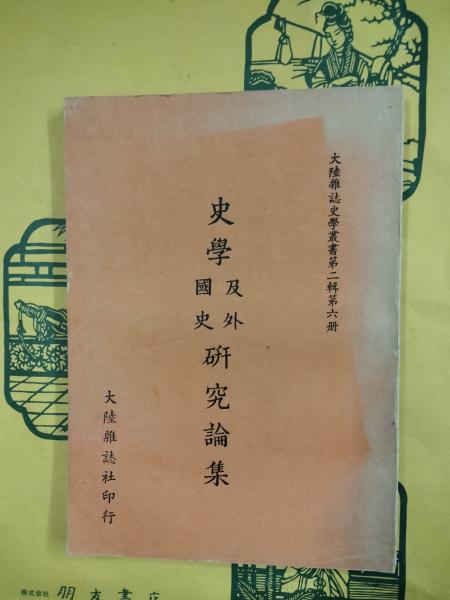 大陸雜誌史學叢書第二輯第六册
史學及外國史研究論集
大陸雜誌社印行
株式会社 朋友書店